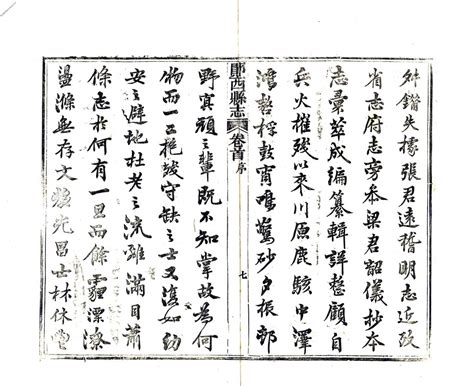 舛錯失據張君遠稽明志近攷
省志府志旁參梁君韶儀抄本
志彙萃成編纂輯詳整顧自
兵火摧殘以來川原鹿駭中澤
鴻嗸桴鼓宵鳴驚砂夕振
鄖西縣志 卷首 序 七
野頭之輩既不知掌故為何
物而一二抱殘守缺之士又復如幼
安之避地杜老之流離滿目蕭
條志於何有一旦餘霾漂潦
盪滌無存文獻先士林休